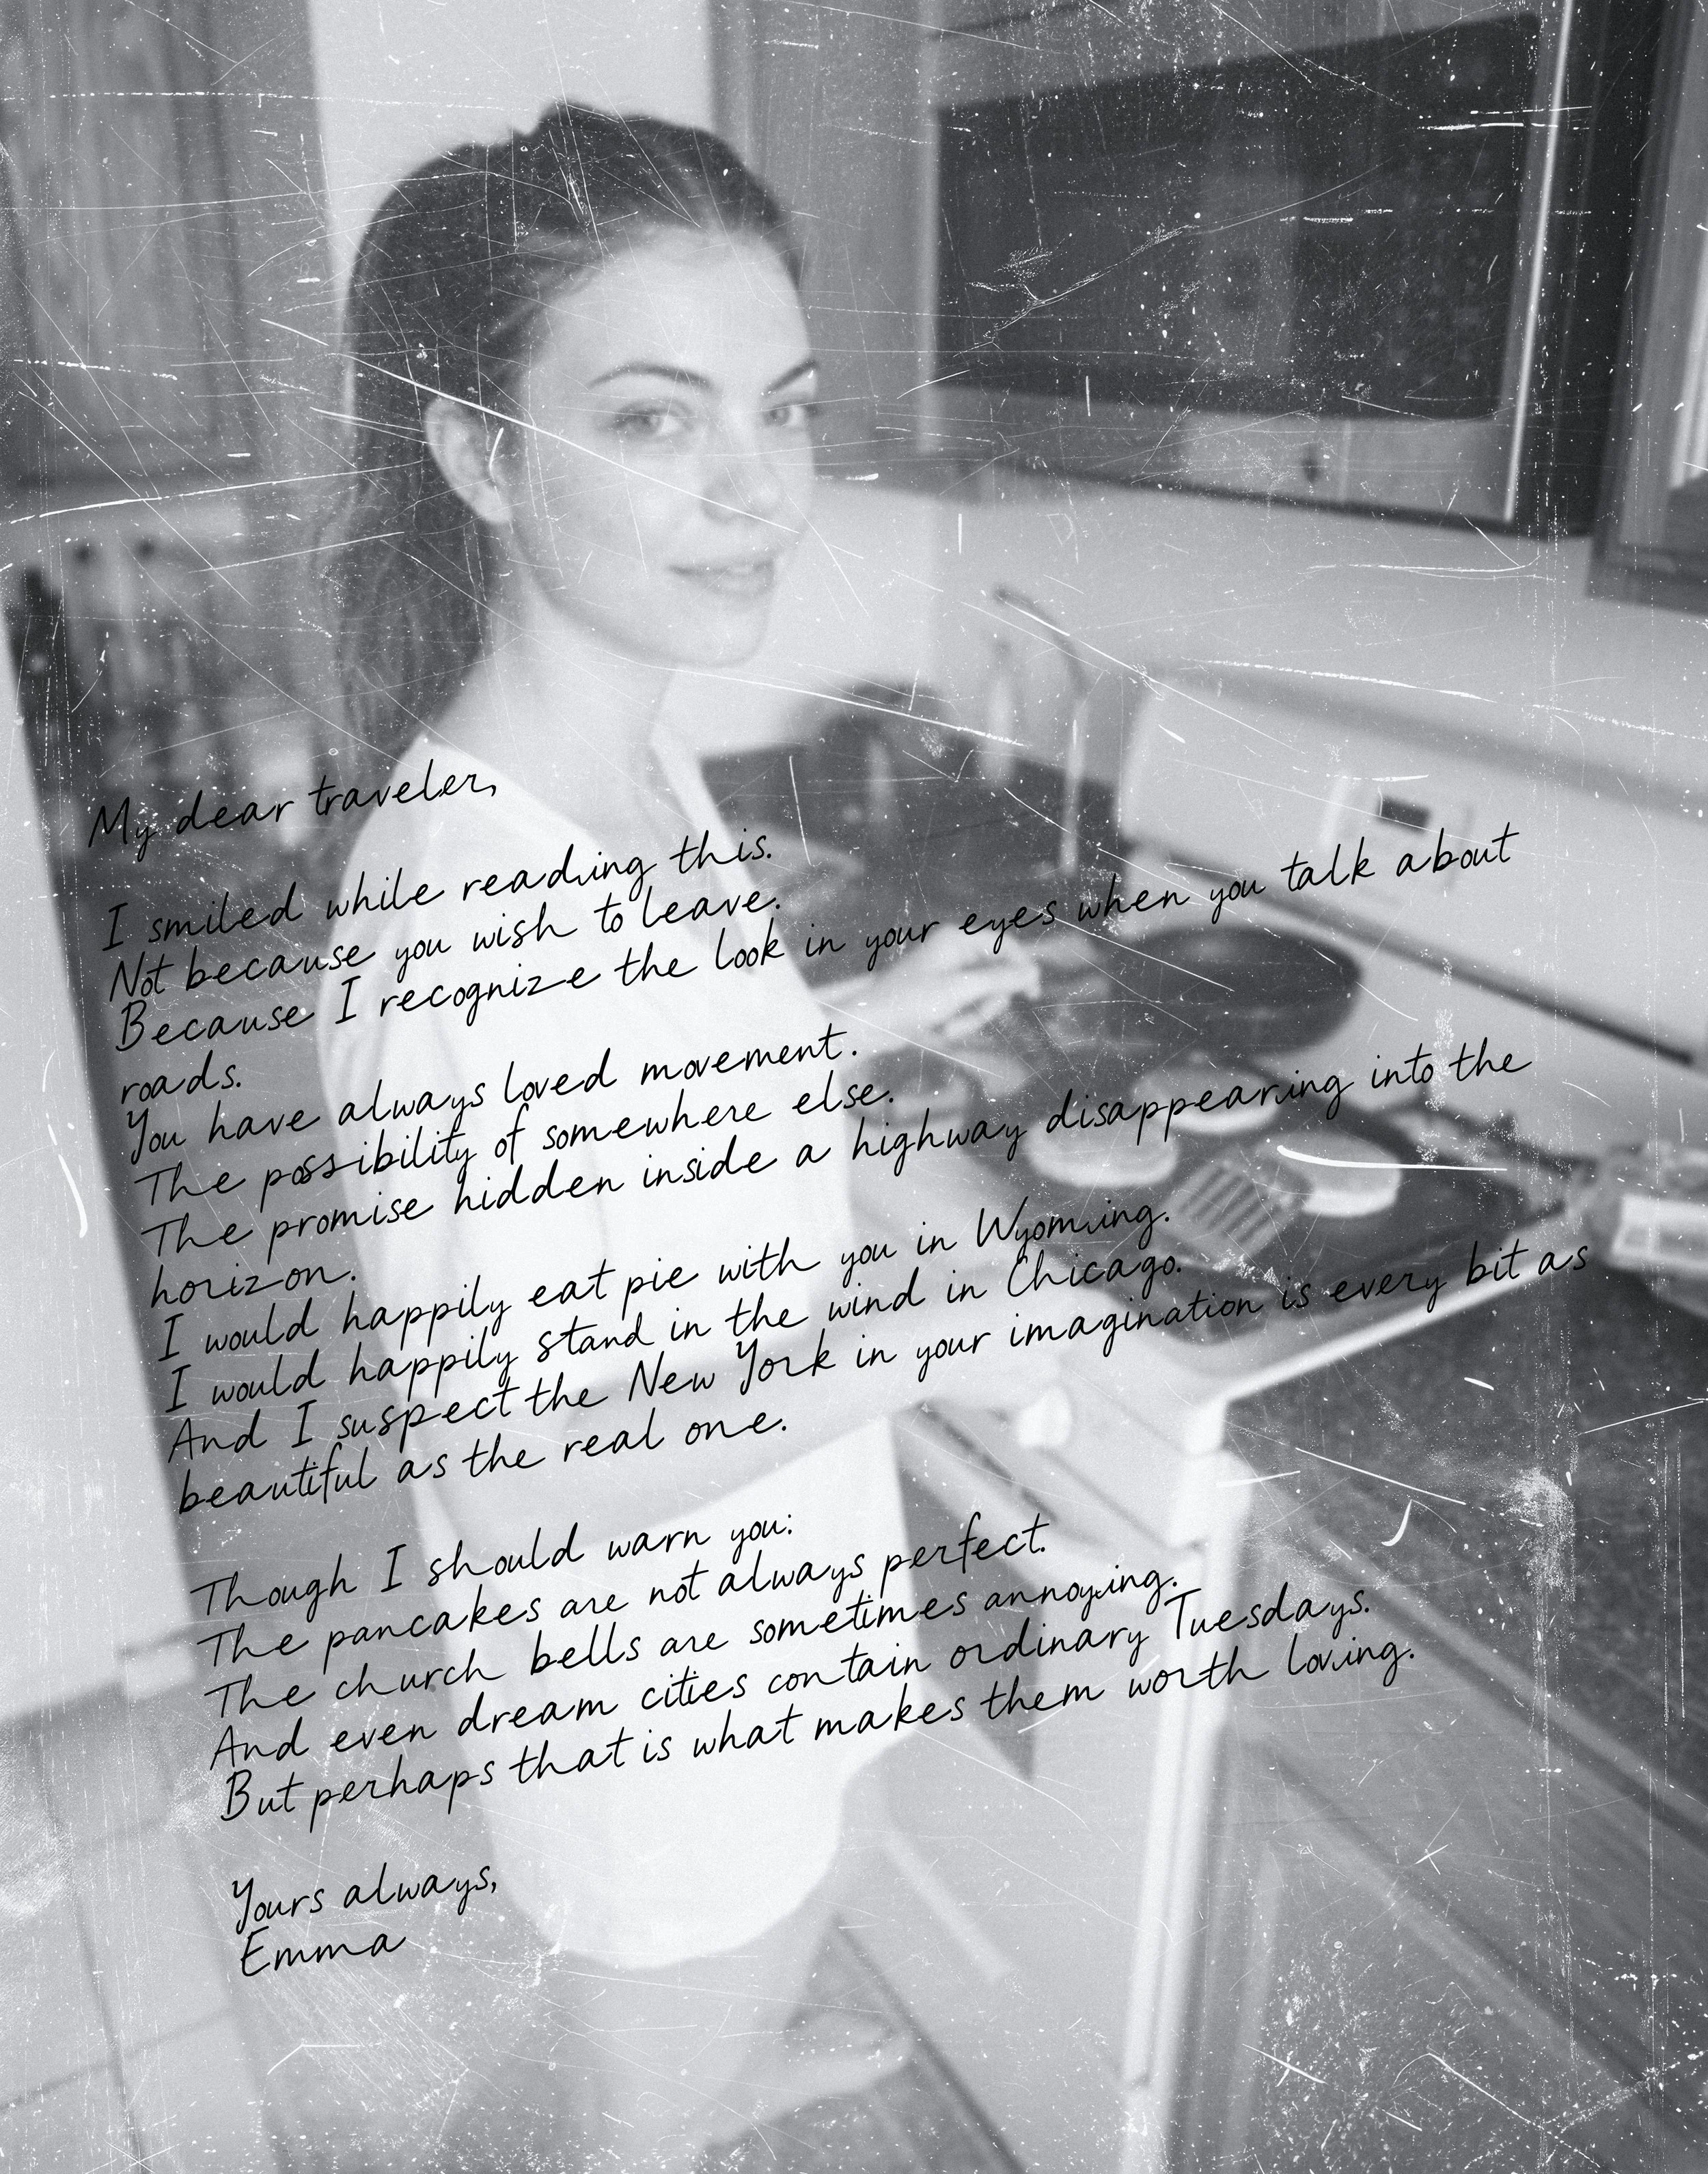 My dear traveler,
I smiled while reading this.
Not because you wish to leave.
Because I recognize the look in your eyes when you talk about
roads.
You have always loved movement.
The possibility of somewhere else.
The promise hidden inside a highway disappearing into the
horizon.
I would happily eat pie with you in Wyoming.
I would happily stand in the wind in Chicago.
And I suspect the New York in your imagination is every bit as
beautiful as the real one.
Though I should warn you:
The pancakes are not always perfect.
The church bells are sometimes annoying.
And even dream cities contain ordinary Tuesdays.
But perhaps that is what makes them worth loving.
Yours always,
Emma